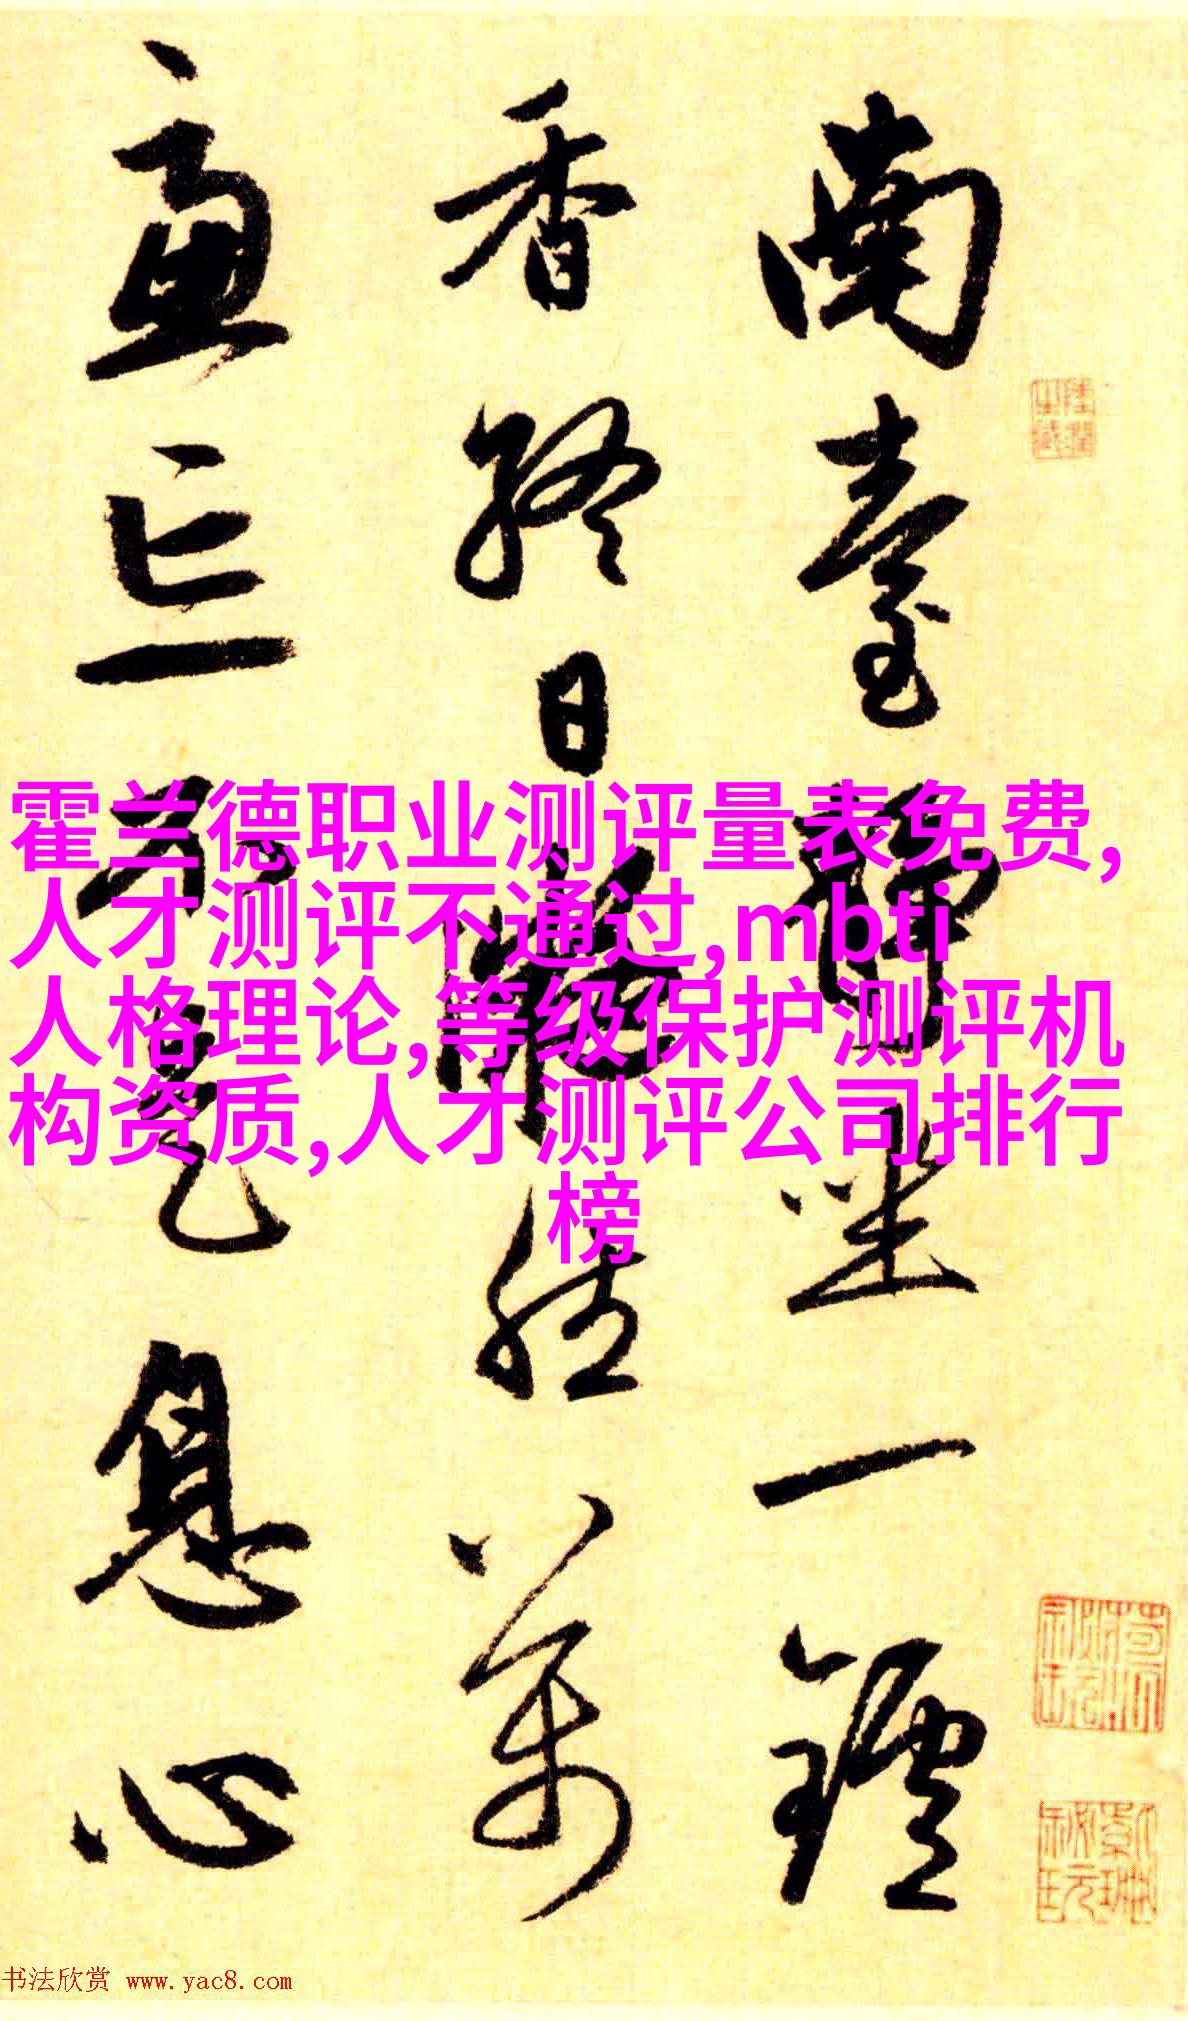 南臺靜坐一鑪
香終日凝然萬
慮忘不是息心
霍兰德职业测评量表免费,
人才测评不通过,mbti
人格理论,等级保护测评机
构资质,人才测评公司排行
榜
书法欣赏 www.yac8.com